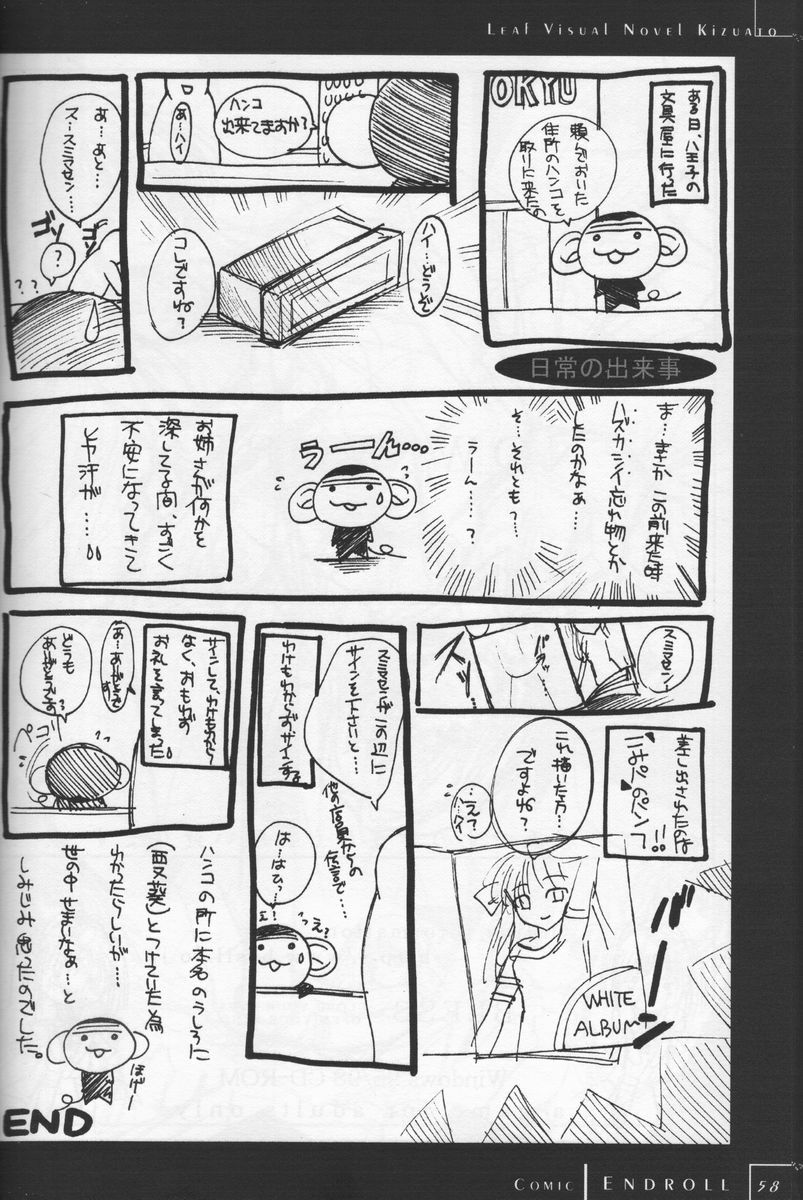 LEAF VISUAL NOVEL KIZUATO
ある日、八王子の
文具屋に行った
OKYU
頼んでおいた
住所のハンコを
取りに来たの
ハンコ
出来てますか?
あ…ハイ
ハイ…どうぞ
コレですね?
あ…あと…
ス…スミマセン…
ゴソ
ゴソ
?
??
日常の出来事
ま…まさかこの前来た時
ハズカシイ忘れ物とか
したのかなぁ…
そ…それとも?…
うーん……?
うーん…
お姉さんが何かを
探してる間、すごく
不安になってきて
ヒヤ汗が……
スミマセン!
バラッ
差し出されたのは
こみパのパンフ!!
これ描いた方…
ですよね?
…え?
ハ…ハイ
WHITE
ALBUM
スミマセンが この辺に
サインを下さいと…
他の店員からの
伝言で…
わけもわからずサインする
は…はひっ…!
っえ?
サインして、わけもわからず
なく、おもわず
お礼を言ってしまった。
あ…ありがとうです
どうも
ありがとうです?
ペコ
ハンコの所に本名のうしろに
(要葵)とつけていた為
わかったらしいが…
世の中せまいなぁ…と
しみじみ思ったのでした。
ほげー
END
COMIC ENDROLL 58